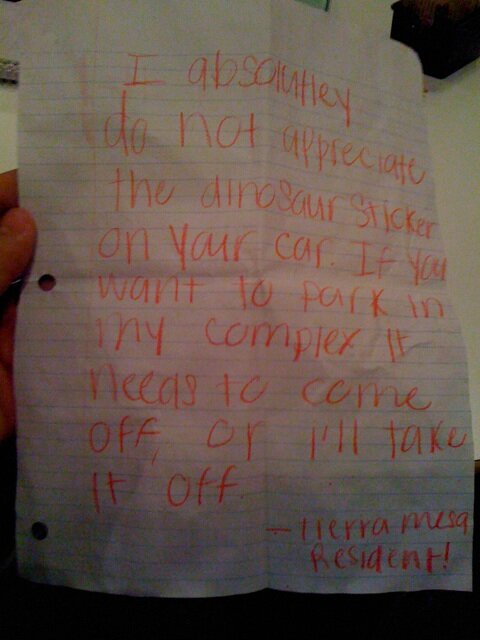 I absolutley
do not appreciate
the dinosaur sticker
on your car. If you
want to park in
my complex it
needs to come
off, or I'll take
it off.
— Tierra mesa
Resident!